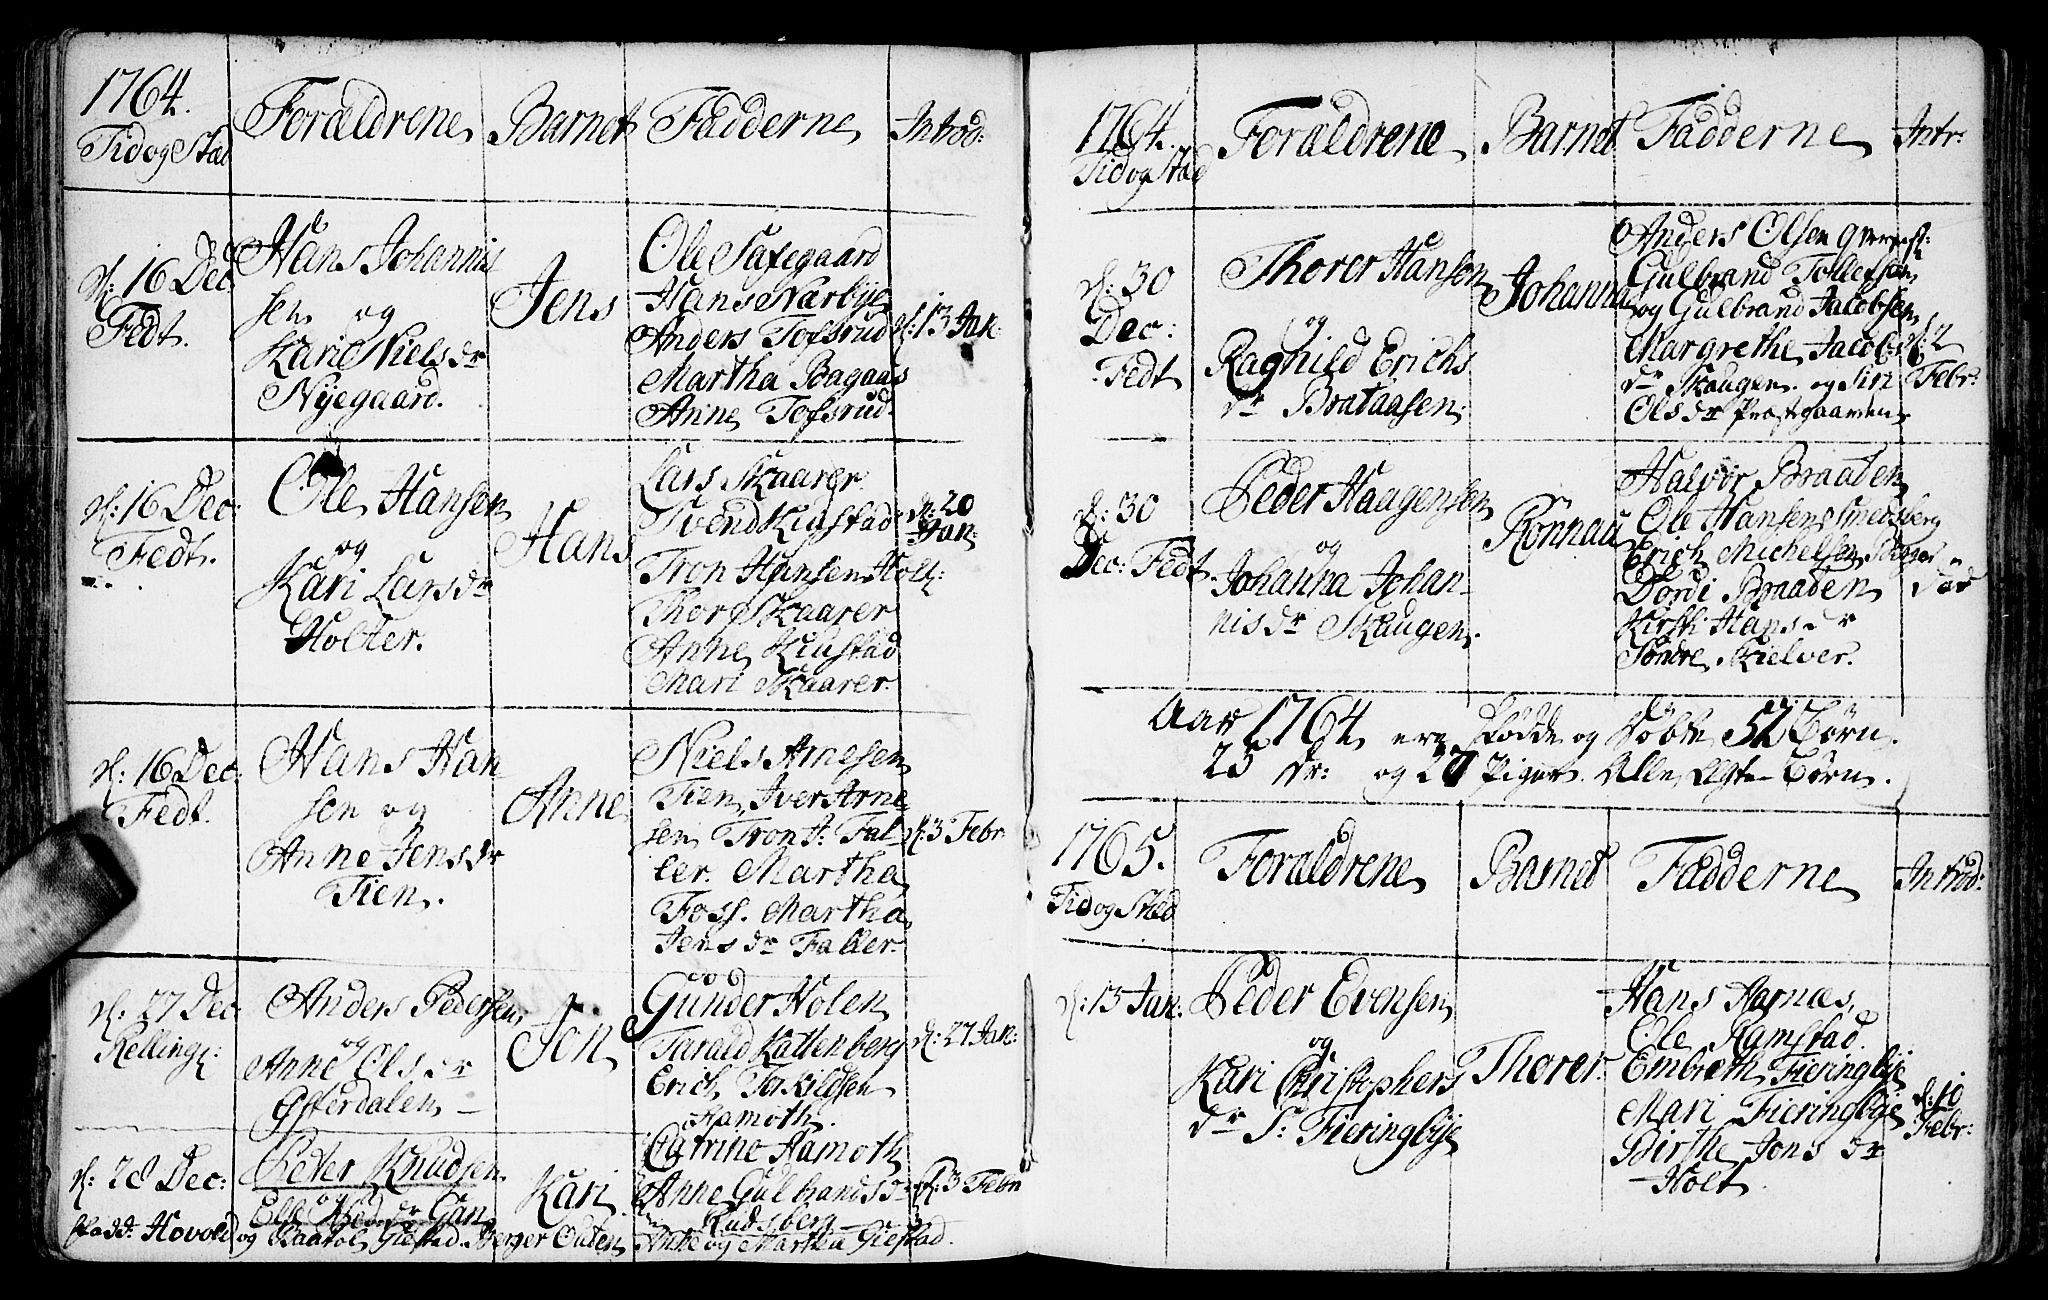 1764.
Tid og Stæd
Forældrene
Barnet
Fadderne
Introd:
d: 16 Dec:
Fedt.
Hans Johannis
sen og
Kari Nielsdr
Nyegaard.
Jens
Ole Saxegaard
Hans Narbye
Anders Tofsrud
Martha Bagaas
Anne Tofsrud.
d: 13 Jan:
d: 16 Dec:
Fedt.
Ole Hansen
og
Kari Larsdr
Holter.
Hans
Lars Skaarer
Svend Kiustad
Tron Hansen Holt:
Thore Skaarer
Anne Kiustad
Mari Skaarer.
d: 20
Jan:
d: 16 Dec:
Fedt.
Hans Han
sen og
Anne Jensdr
Tien.
Anne
Niels Arnesen
Tien, Iver Arne
sen, Tron A: Fal
ler. Martha
Foss. Martha
Jensdr Faller
d: 3 Febr
d: 27 Dec
Relling:
Anders Pedersen
og
Anne Olsdr
Østerdalen
Jon
Gunder Holen
Tarald Kattenberg
Erich Torkildsen
Hamoth.
d: 27 Jan:
d: 28 Dec:
Peder Knudsen
og
Gan
Kari
Catrine Hamoth
Anne Gulbrandsdr
Rudsberg
d: 3 Febr
Hovold og Baarol Giestad. Berger Outen Anne og Martha Giestad.
1764.
Tid og Stæd
Forældrene
Barnet
Fadderne
Intr:
d: 30
Dec:
Fedt
Thorer Hansen
og
Ragnild Erichs
dr Brataasen.
Johanna
Anders Olsen
Gulbrand Tollefsen
og Gulbrand Jacobsen
Margrethe Jacobs
dr Skougen. og Siri
Olsdr Præstgaarden
d: 2
Febr:
d: 30
Dec: Fedt.
Peder Haagensen
og
Johanna Johan-
nisdr Skaugen.
Rønnau
Halvor Braaten
Ole Hansen Smedsberg
Erich Michelsen
Dordi Braaden
Kirsti Hansdr
Søndre Kielver.
død
Aar 1764 ere fødde og døbte 52 Børn.
25 Dr: og 27 Piger. Alle Ægte Børn.
1765.
Tid og Stæd
Forældrene
Barnet
Fadderne
Introd:
d: 13 Jan:
Peder Evensen
og
Kari Christophers
dr S: Fieringbye
Thorer
Hans Harnæs,
Ole Ramstad.
Embreth Fieringbye
Mari Fieringbye
Birthe Jonsdr
Holt
d: 10
Febr: